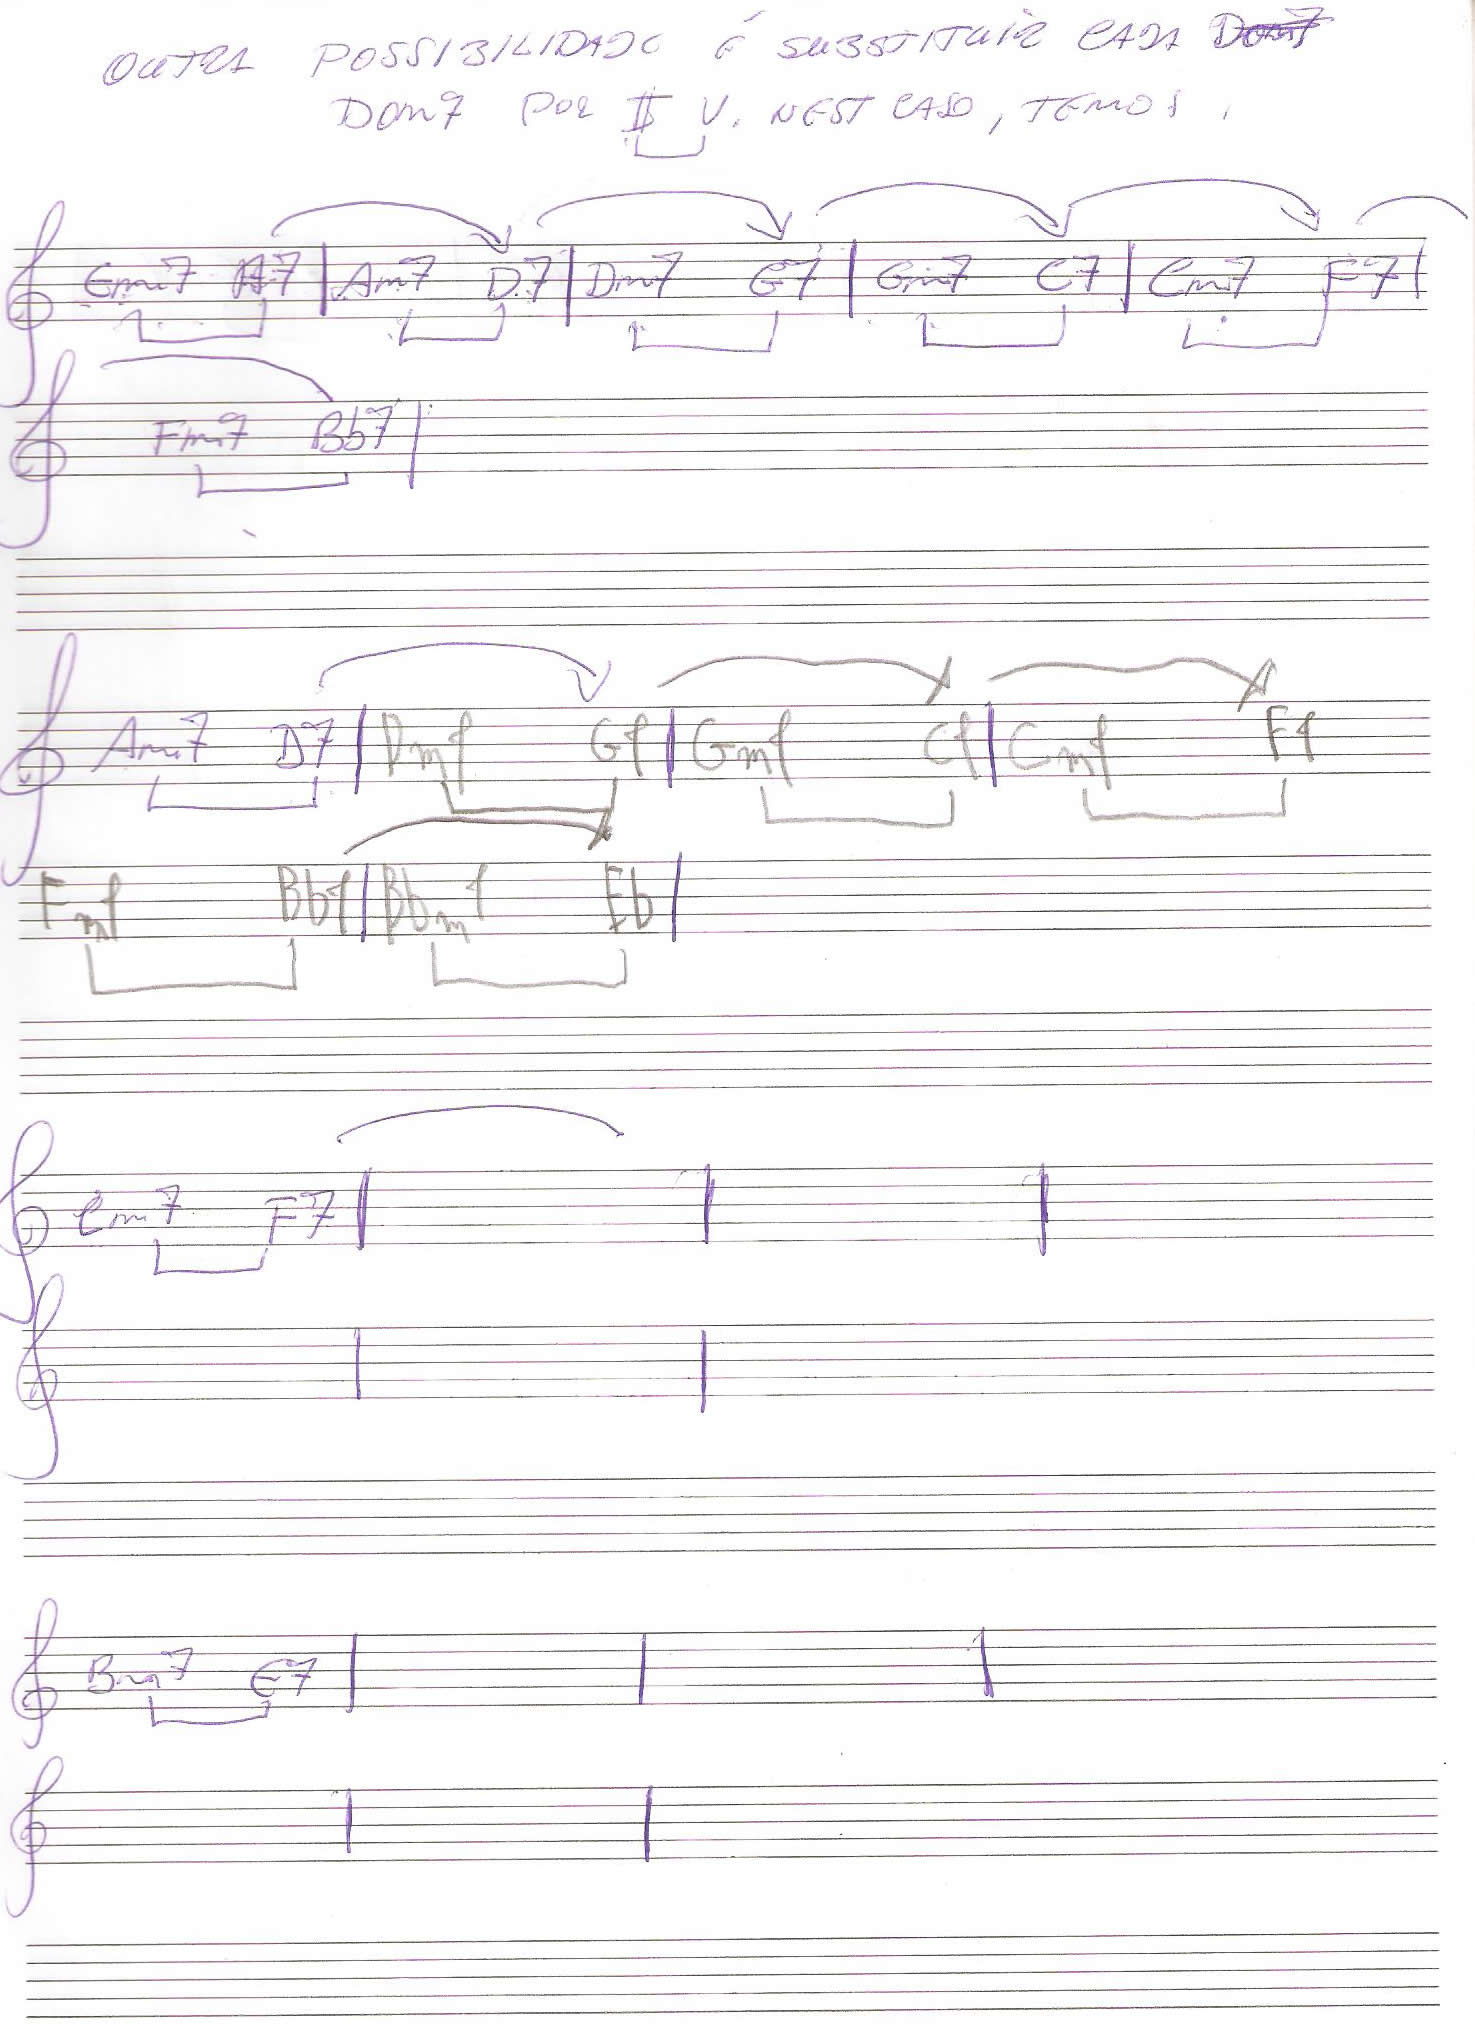 OUTRA POSSIBILIDADE É SUBSTITUIR CADA
DOM7 POR II V. NEST CASO, TEMOS.
Em7 A7 | Am7 D7 | Dm7 G7 | Gm7 C7 | Cm7 F7 |
Fm7 Bb7 |
Am7 D7 | Dm7 G7 | Gm7 C7 | Cm7 F7
Fm7 Bb7 | Bbm7 Eb |
Cm7 F7 | | |
Bm7 E7 | | |